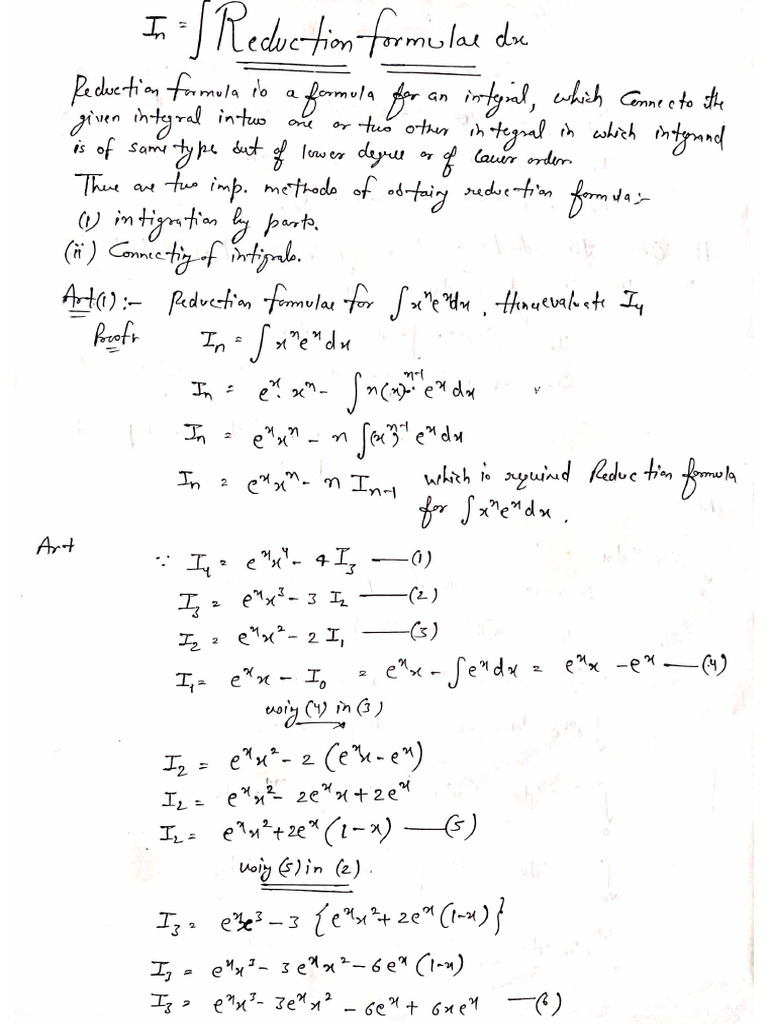 Iₙ = ∫ Reduction formulae dx
Reduction formula is a formula for an integral, which connects the
given integral intwo one or two other integral in which integrand
is of same type but of lower degree or of lower order.
There are two imp. methods of obtaing reduction formula:-
(i) intigration by parts.
(ii) Connectig of intigrals.
Art(1):- Reduction formulae for ∫xⁿeˣdx, Hence evaluate I₄
Proof:- Iₙ = ∫xⁿeˣdx
Iₙ = eˣ. xⁿ - ∫n(x)ⁿ⁻¹. eˣdx
Iₙ = eˣxⁿ - n∫(x)ⁿ⁻¹ eˣdx
Iₙ = eˣxⁿ - n Iₙ₋₁ which is required Reduction formula
for ∫xⁿeˣdx.
Art ∵ I₄ = eˣx⁴ - 4I₃ —(1)
I₃ = eˣx³ - 3 I₂ —(2)
I₂ = eˣx² - 2 I₁ —(3)
I₁ = eˣx - I₀ = eˣx - ∫eˣdx = eˣx - eˣ —(4)
using (4) in (3)
I₂ = eˣx² - 2 (eˣx - eˣ)
I₂ = eˣx² - 2eˣx + 2eˣ
I₂ = eˣx² + 2eˣ(1-x) —(5)
using (5) in (2).
I₃ = eˣx³ - 3 {eˣx² + 2eˣ(1-x)}
I₃ = eˣx³ - 3eˣx² - 6eˣ(1-x)
I₃ = eˣx³ - 3eˣx² - 6eˣ + 6xeˣ —(6)